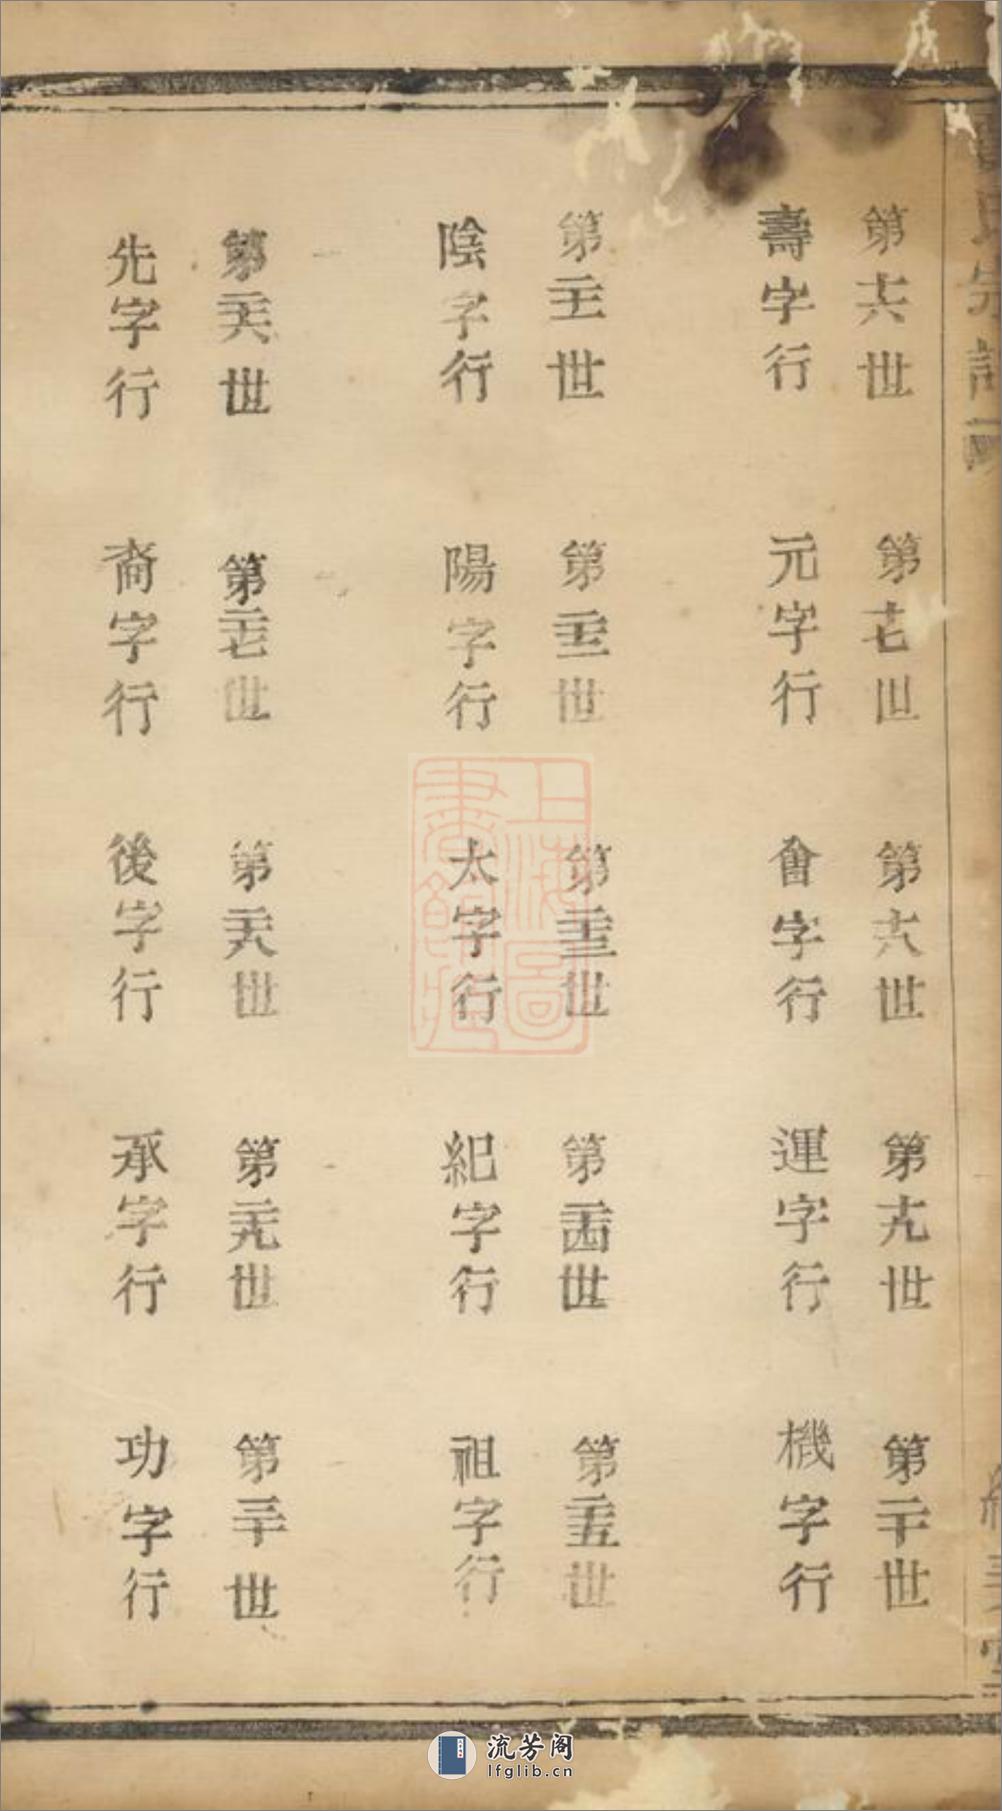 第十六世
壽字行
第十七世
元字行
第十八世
會字行
第十九世
運字行
第二十世
機字行
第二十一世
陰字行
第二十二世
陽字行
第二十三世
太字行
第二十四世
紀字行
第二十五世
祖字行
第二十六世
先字行
第二十七世
裔字行
第二十八世
後字行
第二十九世
承字行
第三十世
功字行
上海圖
書館藏
流芳阁
lfglib.cn